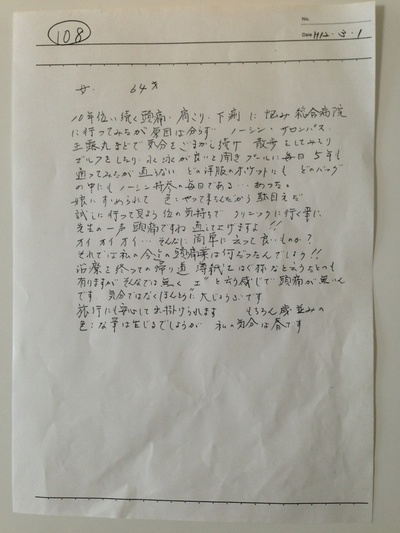 108
No.
Date H12・3・1
女 64才
10年位い続く頭痛・肩こり・下痢に悩み総合病院
に行ってみたが原因は分らず ノーシン・サロンパス
正露丸などで気分をごまかし続け 散歩をしてみたり
ゴルフをしたり、水泳が良いと聞きプールに毎日5年も
通ってみたが直らない どの洋服のポケットにも どのバッグ
の中にもノーシン持参の毎日である…あった。
娘にすすめられて 色々やって来たんだから駄目元だ
試しに行って見よう位の気持ちで クリニックに行く事に
先生の一声 頭痛ですね 直して上げますよ!!
オイオイオイ…そんなに簡単に云って良いものか?
それでは私の今迄の頭痛薬は何だったんでしょう!!
治療を終っての帰り道 薄紙をはぐ様なと云うたとえも
有りますがそんなでは無く
と云う感じで頭痛が無いん
です 気分ではなくほんとうに大じょうぶです
旅行にも安心して出掛けられます もちろん歳並みの
色々な事は生じるでしょうが 私の気分は春です